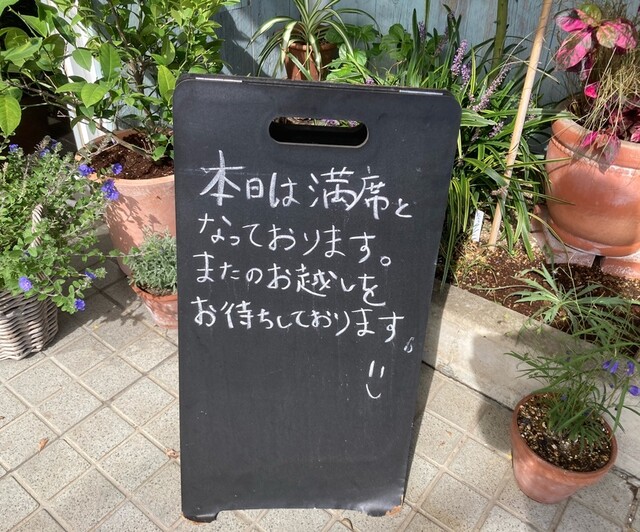 本日は満席と
なっております。
またのお越しを
お待ちしております。